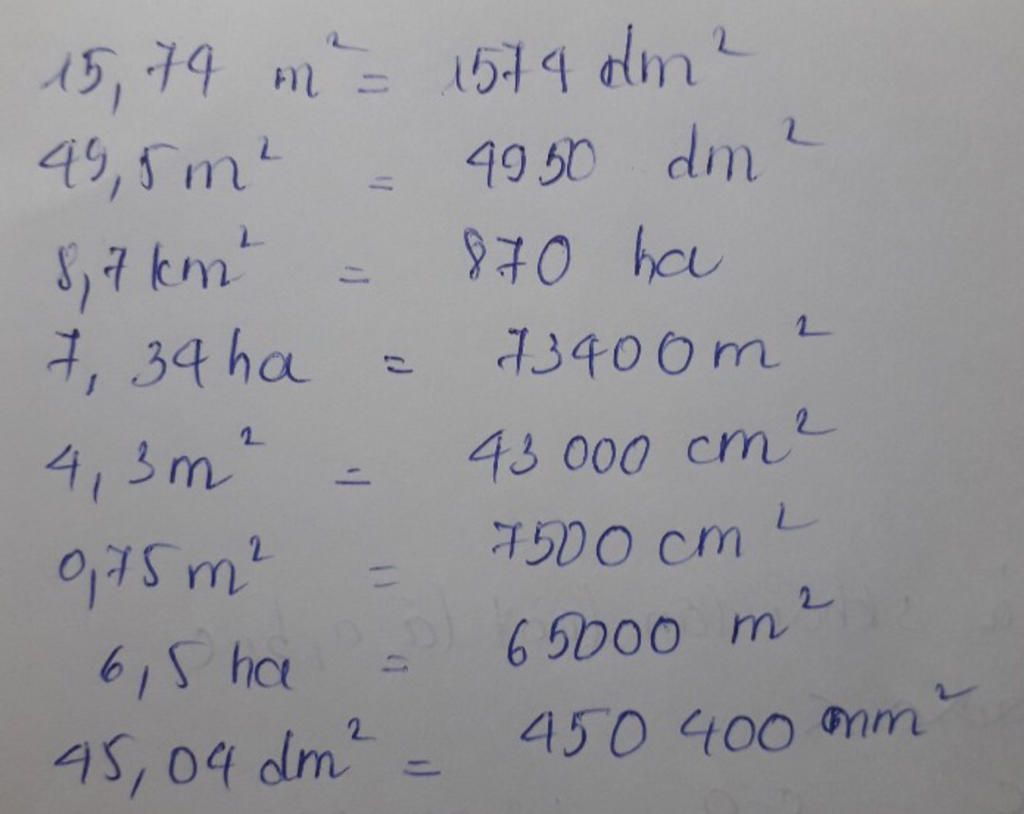 15,74 m² = 1574 dm²
49,5 m² = 4950 dm²
8,7 km² = 870 ha
7,34 ha = 73400 m²
4,3 m² = 43 000 cm²
0,75 m² = 7500 cm²
6,5 ha = 65000 m²
45,04 dm² = 450 400 mm²